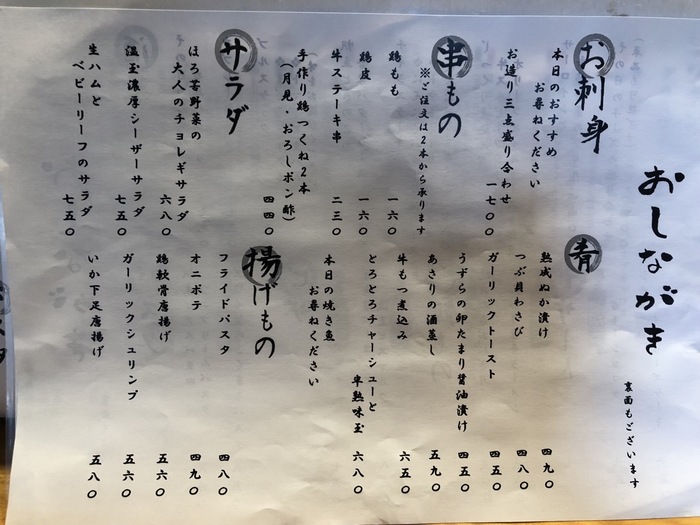 おしながき
裏面もございます
お刺身
本日のおすすめ
お尋ねください
お造り三点盛り合わせ 一七〇〇
串もの
※ご注文は2本から承ります
鶏もも 一六〇
鶏皮 一六〇
牛ステーキ串 二三〇
手作り鶏つくね2本
(月見・おろしポン酢) 四四〇
サラダ
ほろ苦野菜の
大人のチョレギサラダ 六八〇
温玉濃厚シーザーサラダ 七五〇
生ハムと
ベビーリーフのサラダ 七五〇
肴
熟成ぬか漬け 四九〇
つぶ貝わさび 四八〇
ガーリックトースト 四五〇
うずらの卵たまり醤油漬け 四五〇
あさりの酒蒸し 五九〇
牛もつ煮込み 六五〇
とろとろチャーシューと
半熟味玉 六八〇
本日の焼き魚
お尋ねください
揚げもの
フライドパスタ 四八〇
オニポテ 四九〇
鶏軟骨唐揚げ 五六〇
ガーリックシュリンプ 五六〇
いか下足唐揚げ 五八〇